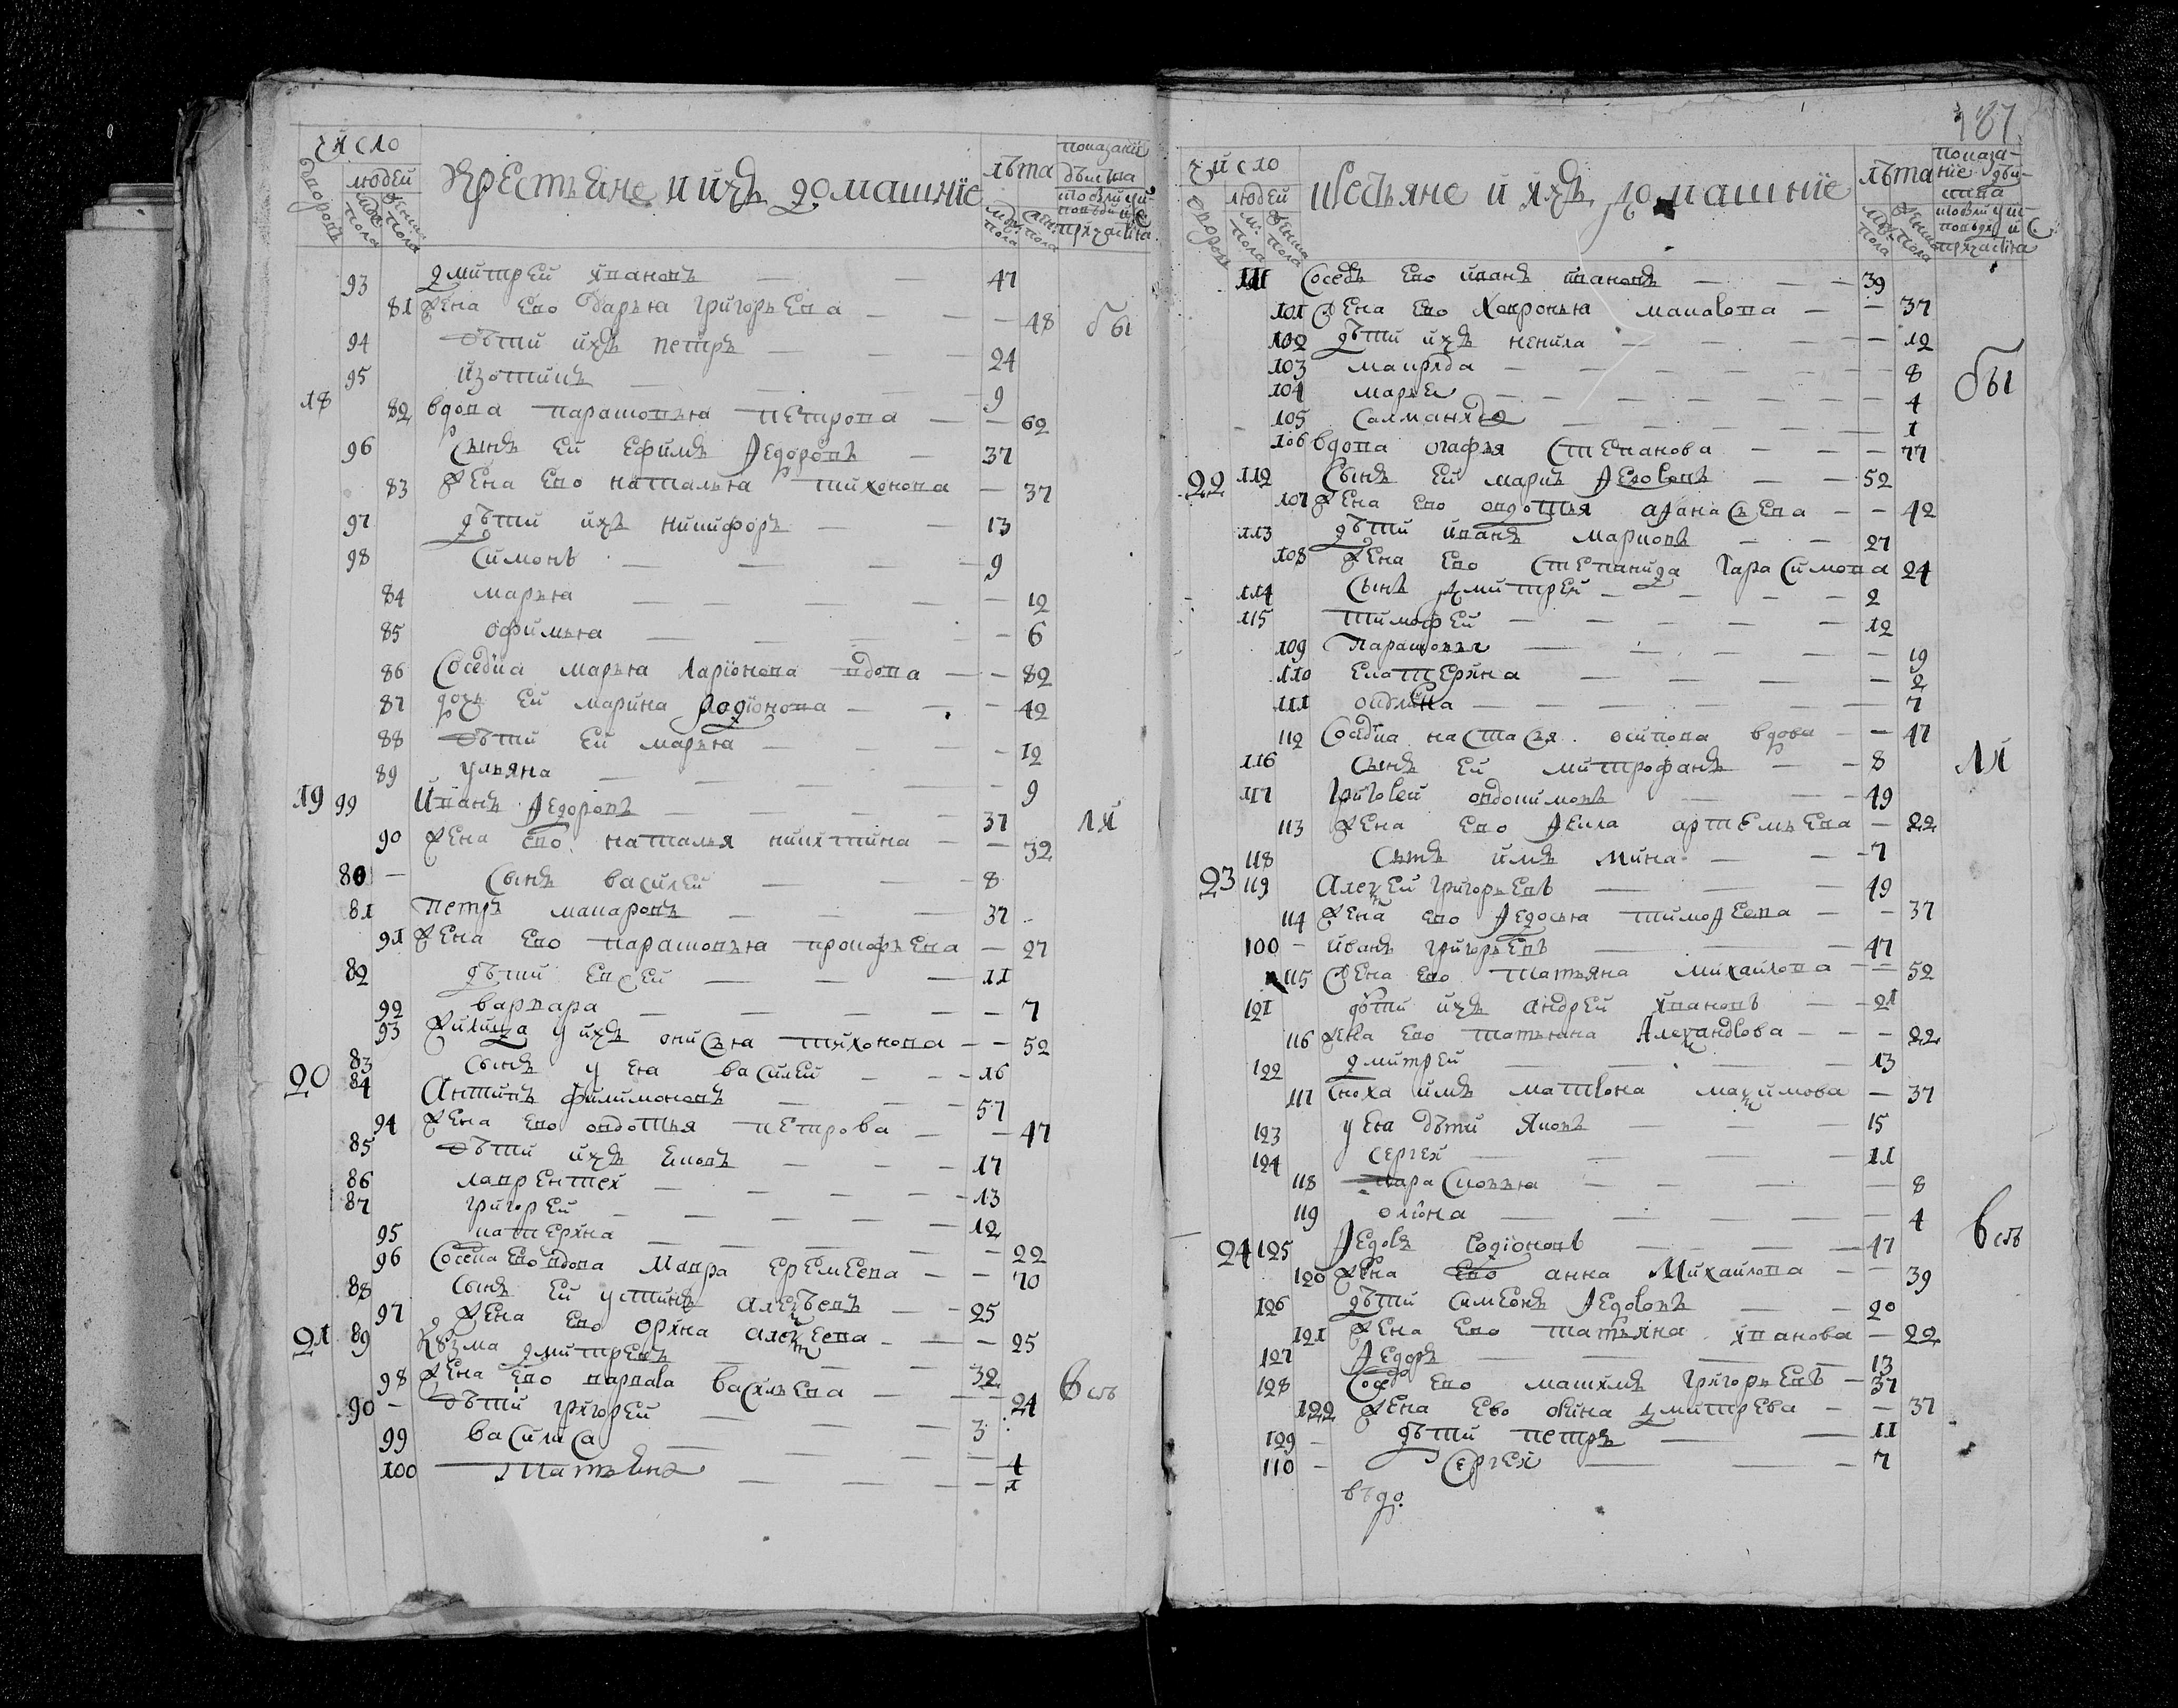 число
дворовъ
людей
муже пола
женска пола
крестьяне и ихъ домашние
лѣта
муж: пола
жен: пола
показание
дѣиства
93 дмитрей ивановъ — — 47
81 жена ево дарья григорьева — — 48 бы
94 дѣти ихъ петръ — — 24
95 изотикъ — — 9
18 82 вдова парасковья петрова — — 62
96 сынъ ей ефимъ ѳедоровъ — 37
83 жена ево наталья тихонова — 37
97 дѣти ихъ никифоръ — — 13
98 симонъ — — — 9
84 марья — — — 12
85 офимья — — — 6
86 соседка марья ларионова вдова — — 82
87 дочь ей марина родионова — — 42
88 дѣти ей марья — — 12
89 ульяна — — — 9
19 99 иванъ ѳедоровъ — — — 37 ли
90 жена ево наталья никитина — — 32
80 — сынъ василей — — 8
81 петръ макаровъ — — — 37
91 жена ево парасковья прокофьева — 27
82 дѣти евсей — — — 11
92 варвара — — — 7
93 живица у ихъ анисья тихонова — — 52
83 сынъ у ея василей — — 16
20 84 антипъ филимоновъ — — 57
94 жена ево овдотья петрова — — 47
85 дѣти ихъ яковъ — — 17
86 лаврентей — — — 13
87 григорей — — — 12
95 катерина — — — 22
96 соседка ево вдова мавра еремеева — — 70
88 сынъ ей устинъ алексѣевъ — — 25
97 жена ево орина алексеева — — 25
21 89 козма дмитревъ — — 32
98 жена ево варвара васильева — — 24 всѣ
90 — дѣти григорей — — 3
99 василиса — — 4
100 татьяна — — 1
187
число
дворовъ
людей
м: пола
женска пола
крестьяне и ихъ домашние
лѣта
муж: пола
женска пола
показание дѣиства
111 соседъ ево иванъ ивановъ — — 39
101 жена ево ховронья макарова — — 37
102 дѣти ихъ ненила — — 12
103 мавряда — — — 8 бы
104 марья — — — 4
105 саламанида — — — 1
106 вдова огафья степанова — — 77
22 112 сынъ ей маркъ ѳедоровъ — — 52
107 жена ево овдотья аѳанасьева — — 42
113 дѣти иванъ марковъ — — 27
108 жена ево степанида гарасимова 24
114 сынъ дмитрей — — — 2
115 тимофей — — — 12
109 парасковья — — — 19
110 екатерина — — — 2
111 овдокея — — — 7
112 соседка настасья осипова вдова — — 47
116 сынъ ей митрофанъ — — 8 ли
117 григорей овдокимовъ — — 49
113 жена ево ѳекла артемьева — 22
118 сынъ имъ мина — — 7
23 119 алексей григорьевъ — — 49
114 жена ево ѳедосья тимоѳеева — — 37
100 — иванъ григорьевъ — — 47
115 жена ево татьяна михайлова — — 52
121 дѣти ихъ андрей ивановъ — — 21
116 жена ево татьяна александрова — — 22
122 дмитрей — — — 13
117 сноха имъ матрона максимова — 37
123 у ея дѣти яковъ — — 15
124 сергей — — — 11
118 парасковья — — — 8
119 олиона — — — 4
24 125 ѳедоръ родионовъ — — 47 всѣ
120 жена ево анна михайлова — — 39
126 дѣти симеонъ ѳедоровъ — — 20
121 жена ево татьяна иванова — 22
127 ѳедоръ — — — 13
128 соседъ ево максимъ григорьевъ — 37
122 жена ево окина дмитрева — — 37
129 — дѣти петръ — — 11
110 — сергей — — 7
вѣдо